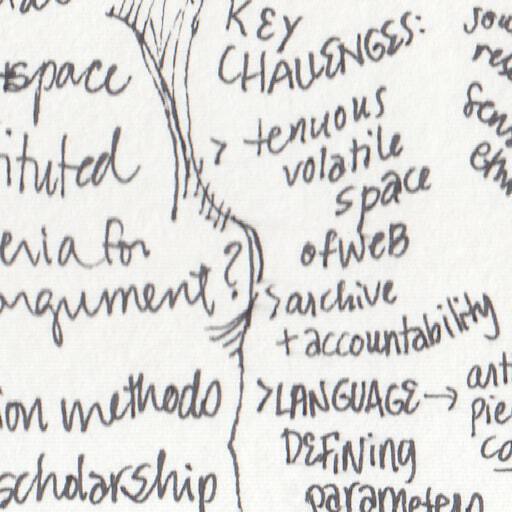 space
ituted
eria for
argument?
ion methods
scholarship
KEY
CHALLENGES:
> tenuous
volatile
space
of WEB
> archive
+ accountability
> LANGUAGE →
DEFINING
parameters